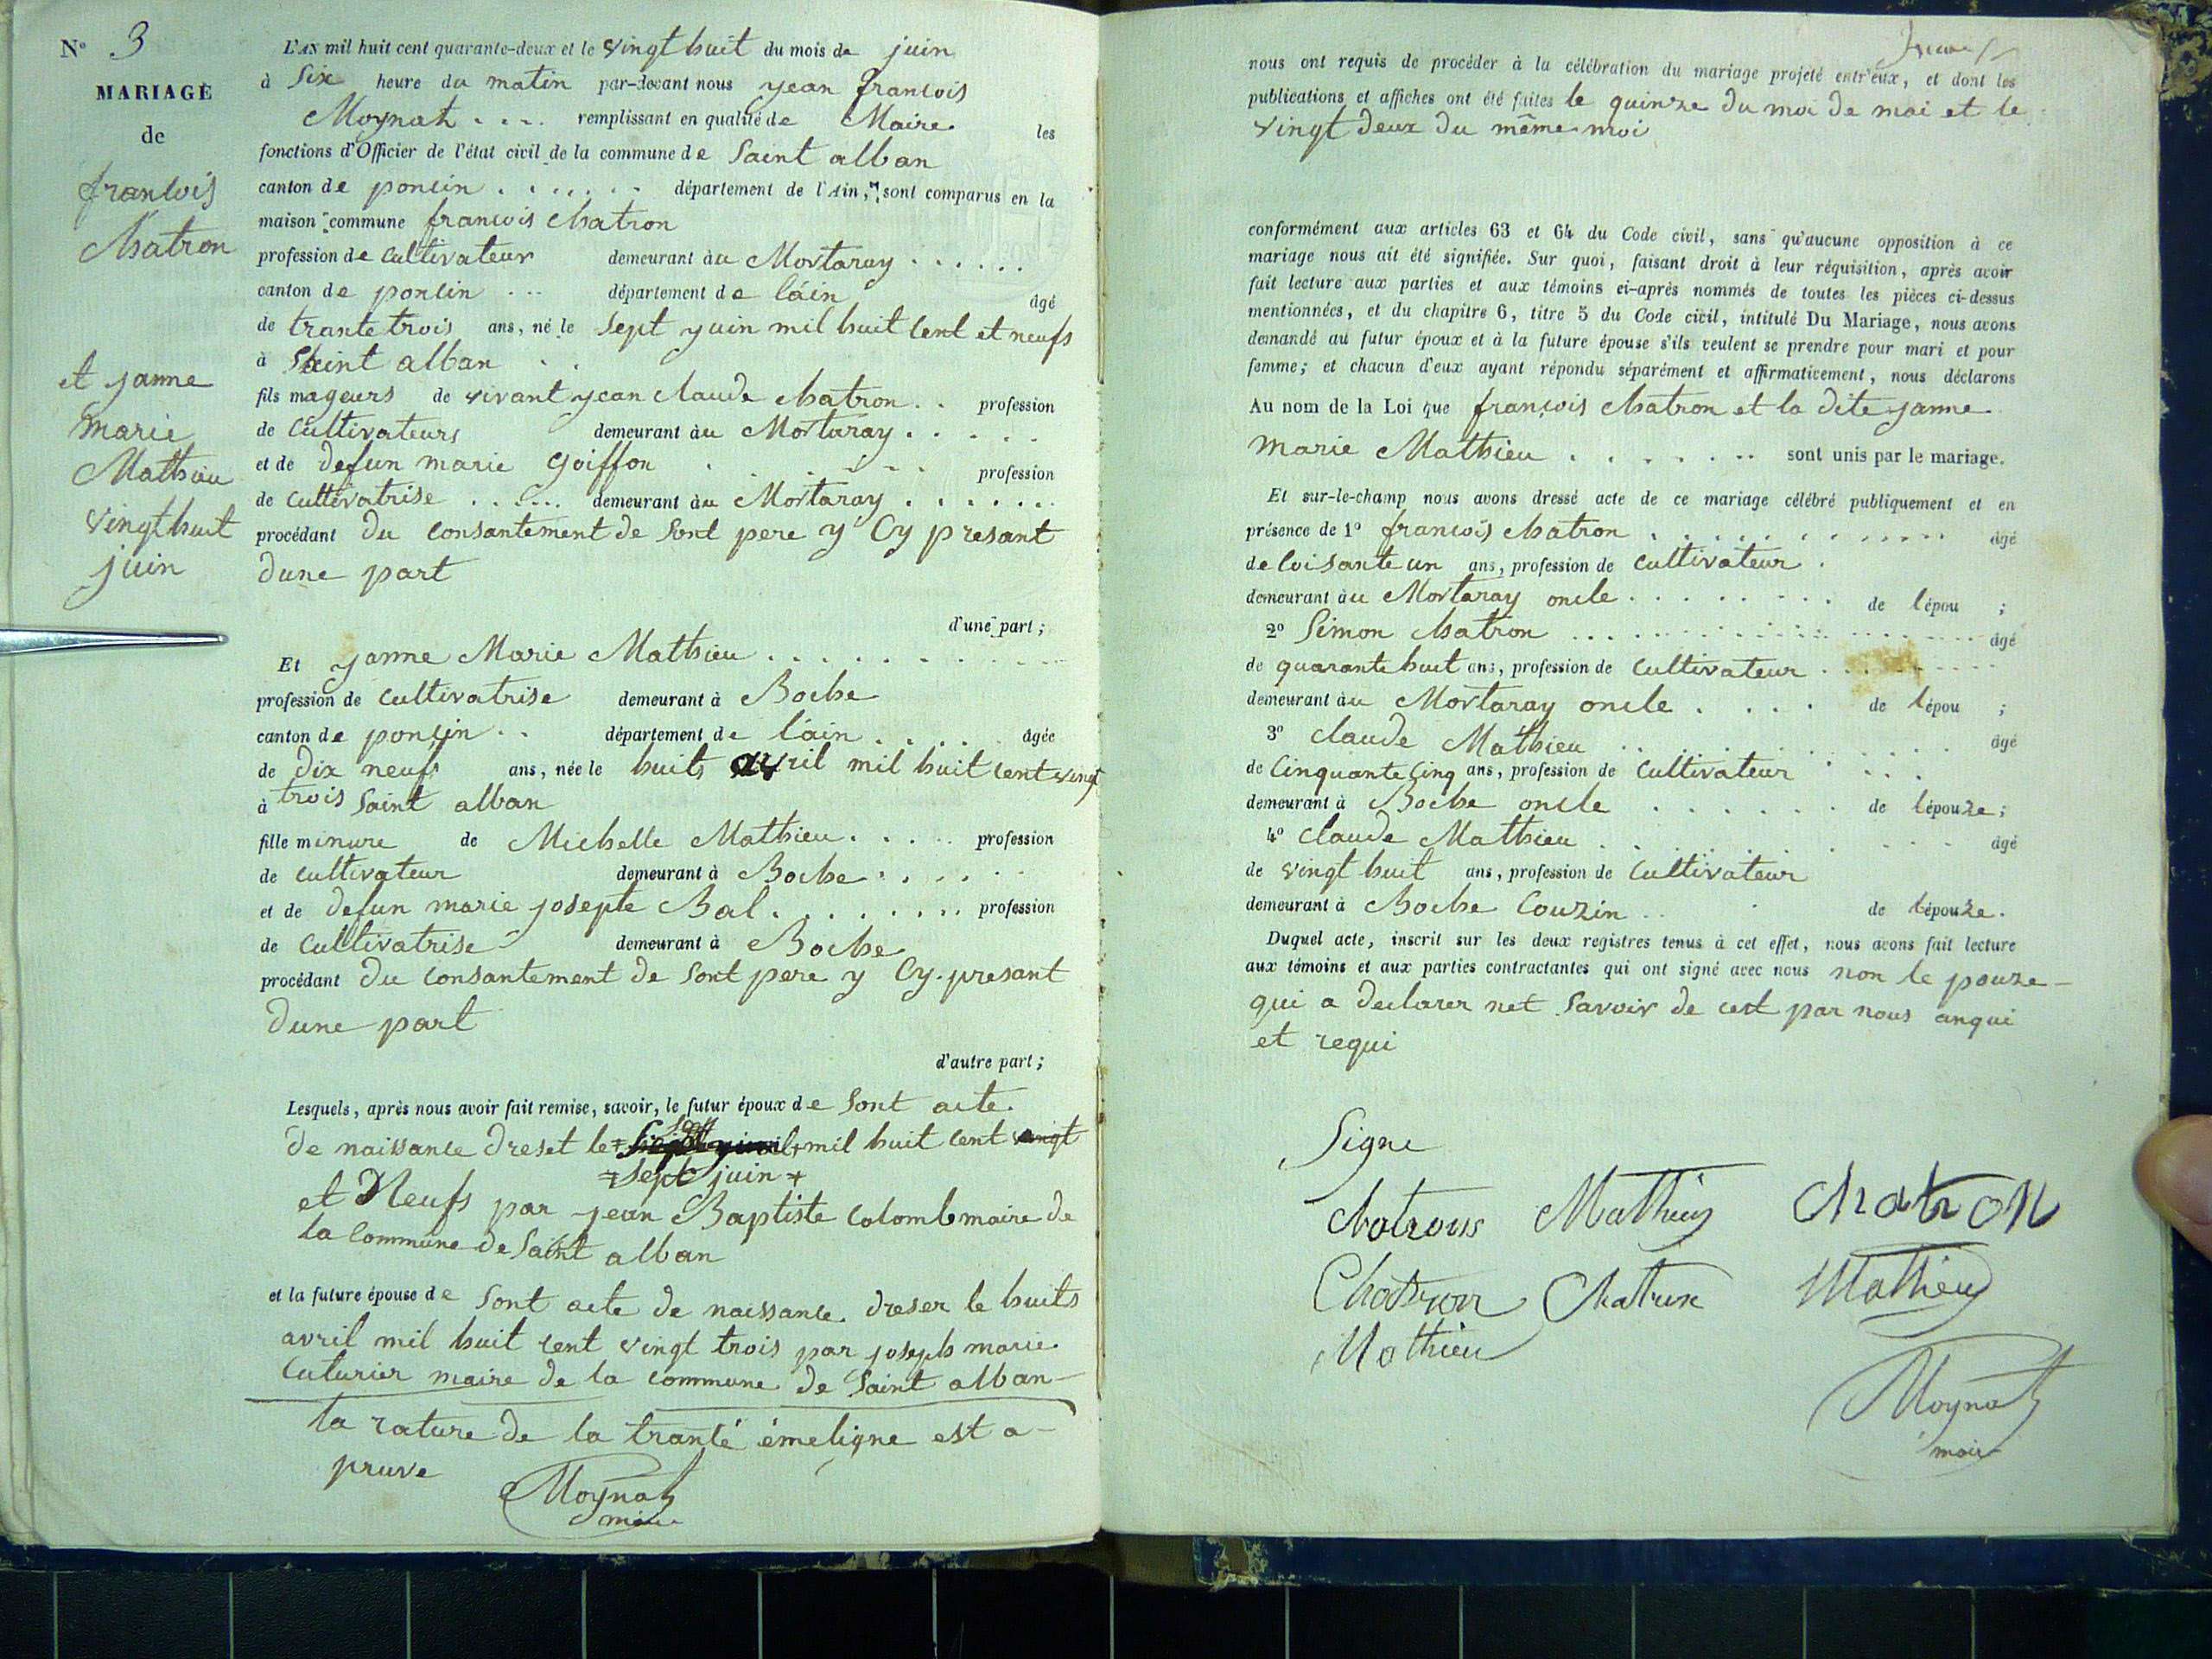 N° 3
MARIAGE
de
francois
Chatron
et janne
marie
Mathieu
vingt huit
juin
L'AN mil huit cent quarante-deux et le vingt huit du mois de juin
à Six heure du matin par-devant nous yean francois
Moynat . . . . remplissant en qualité de Maire les
fonctions d'Officier de l'état civil de la commune de Saint alban
canton de poncin . . . . . . département de l'Ain, sont comparus en la
maison commune francois Chatron
profession de cultivateur demeurant au Mortaray . . . . . .
canton de poncin . . . département de láin âgé
de trante trois ans, né le Sept yuin mil huit Cent et neufs
à Saint alban . .
fils mageurs de vivant yean claude chatron . . profession
de cultivateurs demeurant au Mortaray . . . . .
et de defun marie goiffon . . . . . profession
de cultivatrise . . . . . demeurant au Mortaray . . . . . . .
procédant du consantement de Sont pere y Cy presant
dune part
d'une part ;
Et yanne Marie Mathieu . . . . . . . . . . . .
profession de cultivatrise demeurant à Boche
canton de poncin . . département de láin . . . . . âgée
de dix neufs ans, née le huits avril mil huit cent vingt
à trois Saint alban
fille minure de Michelle Mathieu . . . . profession
de cultivateur demeurant à Boche . . . . . .
et de defun marie josepte Bal . . . . . . . . profession
de cultivatrise demeurant à Boche
procédant du consantement de Sont pere y Cy presant
dune part
d'autre part ;
Lesquels, après nous avoir fait remise, savoir, le futur époux de Sont acte
de naissance dreset le mil huit cent vingt
=sept juin +
et Neufs par jean Baptiste colomb maire de
la commune de Saint alban
et la future épouse de Sont acte de naissance dreser le huits
avril mil huit cent vingt trois par joseph marie
Cuturier maire de la commune de Saint alban
la rature de la tranté émeligne est a-
pruve
Moynat
maire
nous ont requis de procéder à la célébration du mariage projeté entr'eux, et dont les
publications et affiches ont été faites le quinze du moi de mai et le
vingt deux du même moi
conformément aux articles 63 et 64 du Code civil, sans qu'aucune opposition à ce
mariage nous ait été signifiée. Sur quoi, faisant droit à leur réquisition, après avoir
fait lecture aux parties et aux témoins ci-après nommés de toutes les pièces ci-dessus
mentionnées, et du chapitre 6, titre 5 du Code civil, intitulé Du Mariage, nous avons
demandé au futur époux et à la future épouse s'ils veulent se prendre pour mari et pour
femme ; et chacun d'eux ayant répondu séparément et affirmativement, nous déclarons
Au nom de la Loi que françois chatron et la dite yanne
marie Mathieu . . . . . . . sont unis par le mariage.
Et sur-le-champ nous avons dressé acte de ce mariage célébré publiquement et en
présence de 1° francois chatron . . . . . . . . . . . . âgé
de Coisante un ans, profession de cultivateur .
demeurant au Mortaray oncle . . . . . . . . de lépou ;
2° Simon chatron . . . . . . . . . . . . . . . . âgé
de quarante huit ans, profession de cultivateur . . . . . .
demeurant au Mortaray oncle . . . . de lépou ;
3° claude Mathieu . . . . . . . . . . . . . âgé
de Cinquante Cinq ans, profession de cultivateur . . . .
demeurant à Boche oncle . . . . . . de lépouze ;
4° claude Mathieu . . . . . . . . . . . âgé
de vingt huit ans, profession de cultivateur
demeurant à Boche Couzin . . . de lépouze.
Duquel acte, inscrit sur les deux registres tenus à cet effet, nous avons fait lecture
aux témoins et aux parties contractantes qui ont signé avec nous non le pouze
qui a declarer net Savoir de cest par nous anqui
et requi
Signe
Chatrons Mathieu Chatron
Chatron Chatron Mathieu
Mathieu
Moynat
maire